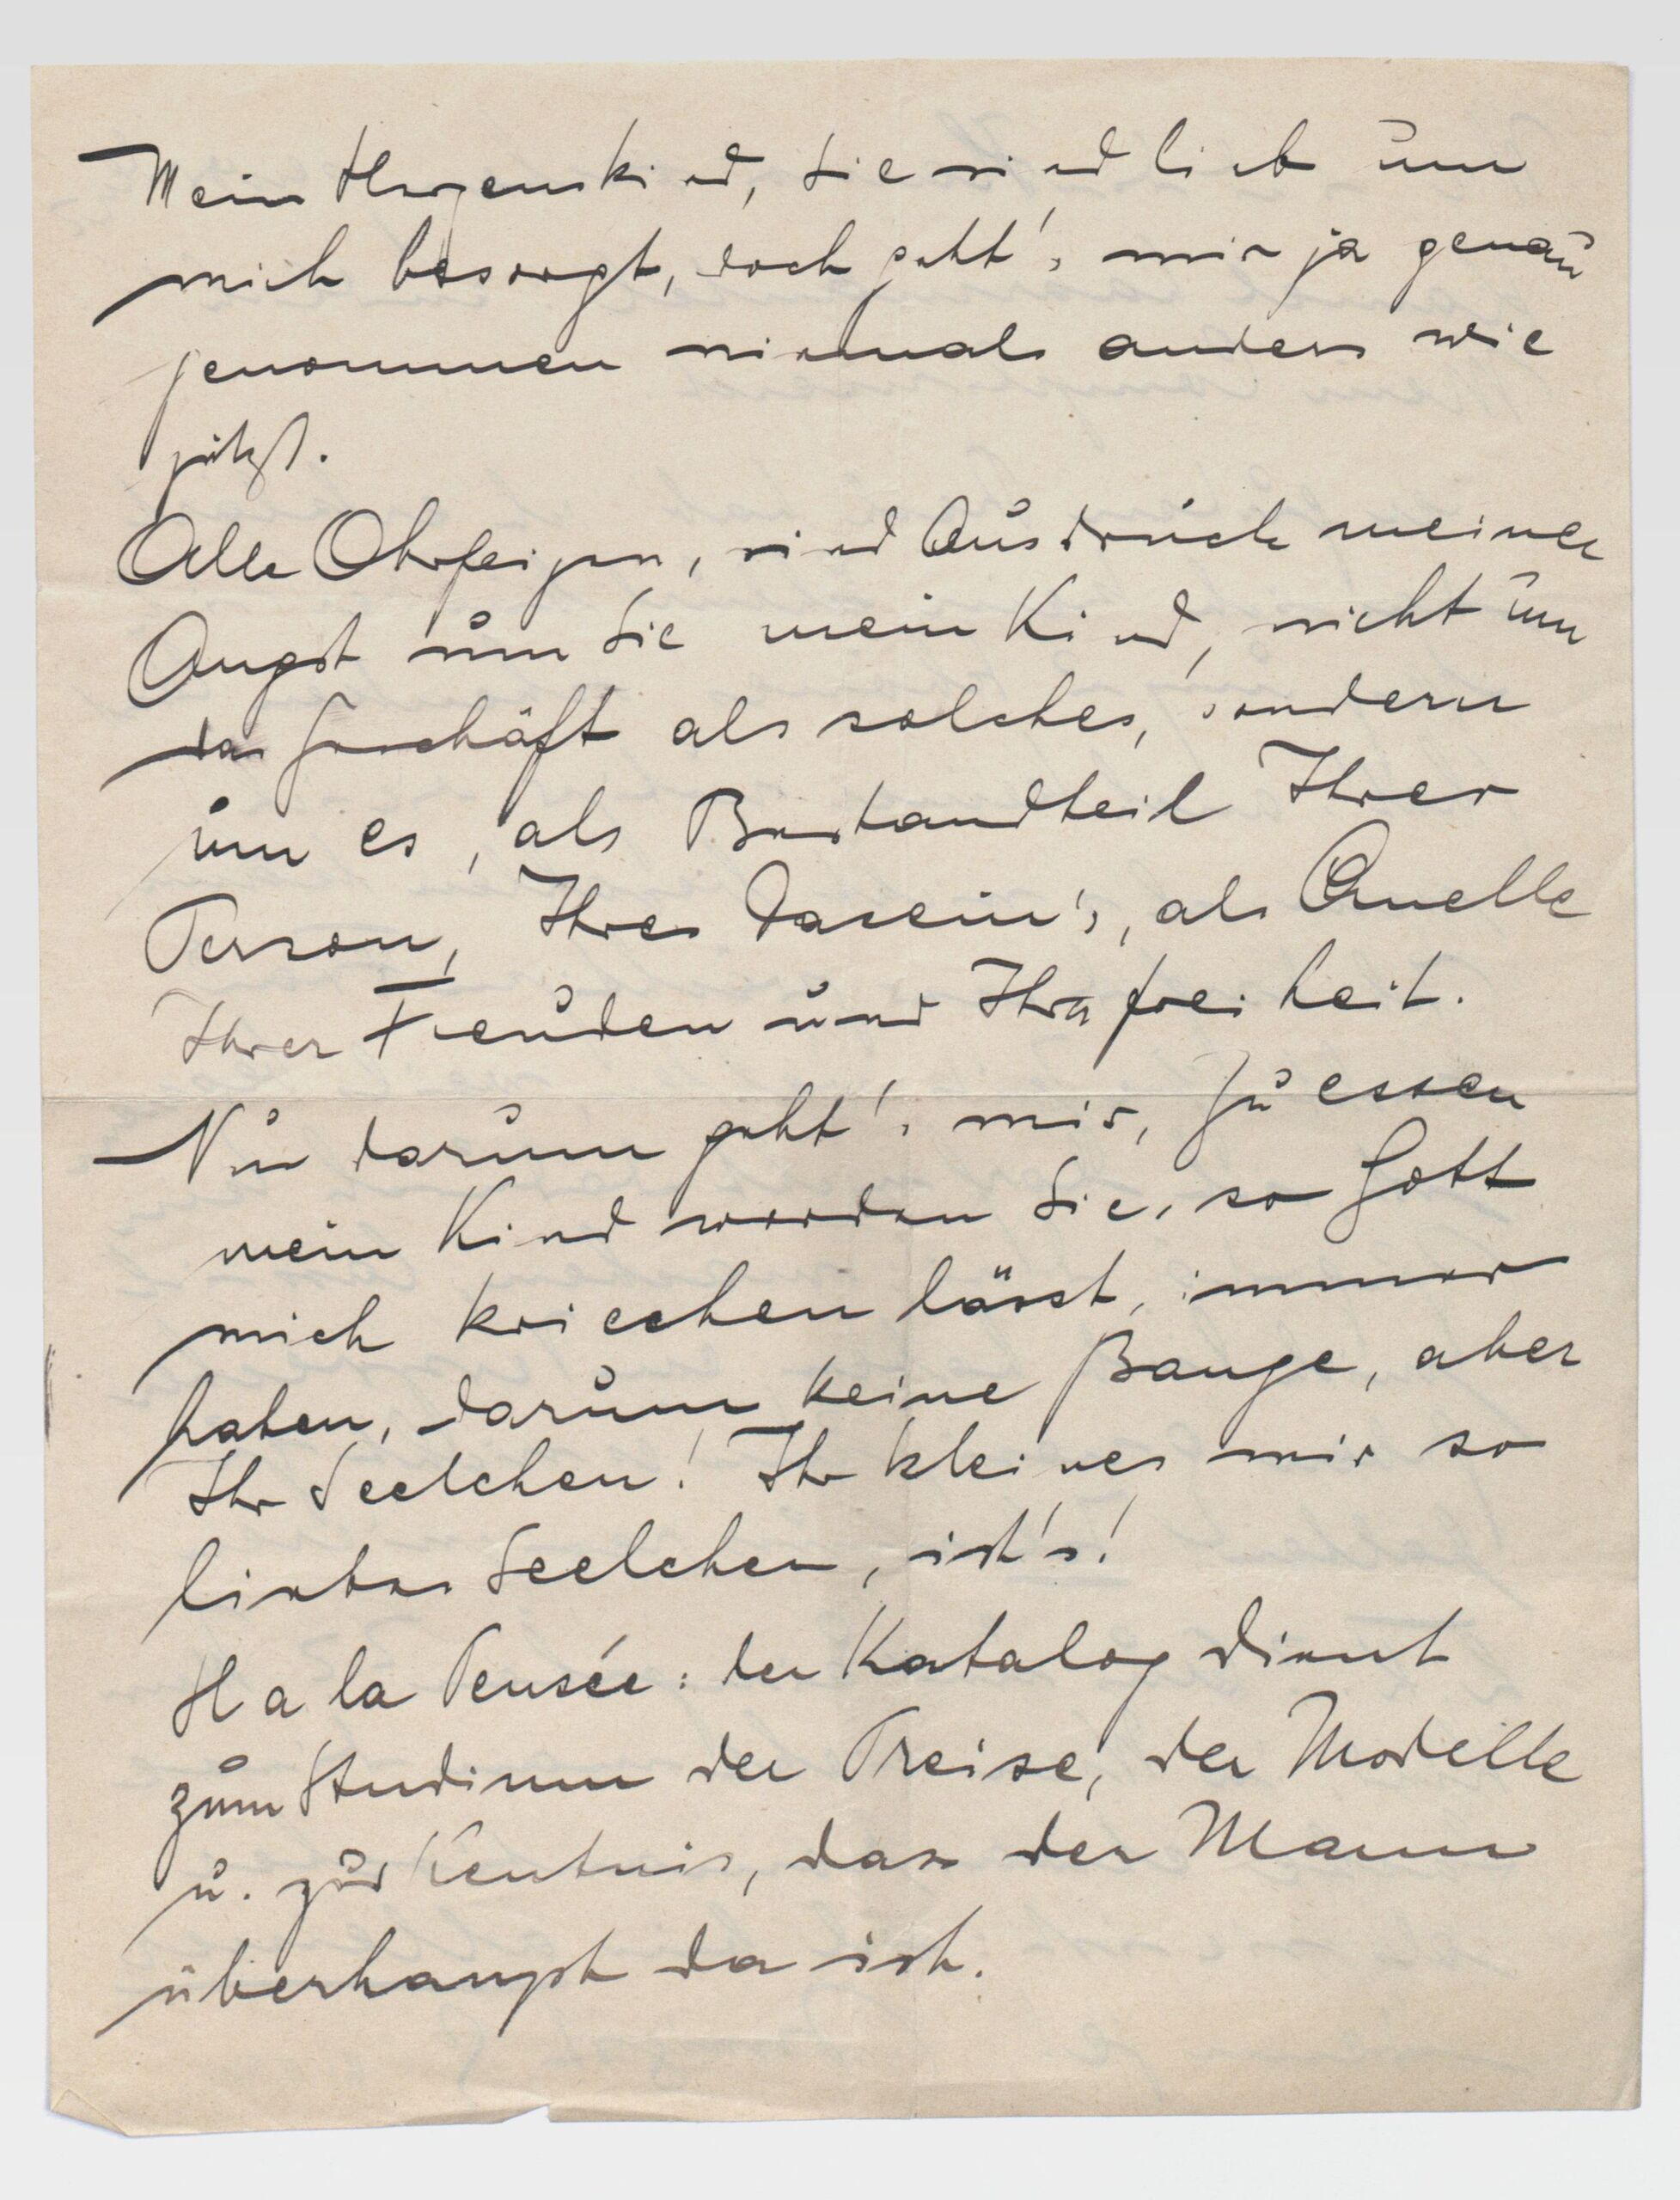 Mein Herzenskind, Sie sind lieb um
mich besorgt, doch geht's mir ja genau
genommen niemals anders wie
jetzt.
Alle Ohrfeigen, sind Ausdruck meiner
Angst um Sie mein Kind, nicht um
das Geschäft als solches, sondern
um es, als Bestandteil Ihrer
Person, Ihres Dasein's, als Quelle
Ihrer Freuden und Ihrer Freiheit.
Nur darum geht's mir, zu essen
mein Kind werden Sie, so Gott
mich kriechen lässt, immer
haben, darum keine Bange, aber
Ihr Seelchen! Ihr kleines mir so
liebes Seelchen, ist's!
H a la Pensée: der Katalog dient
zum Studium der Preise, der Modelle
u. zur Kentnis, dass der Mann
überhaupt da ist.